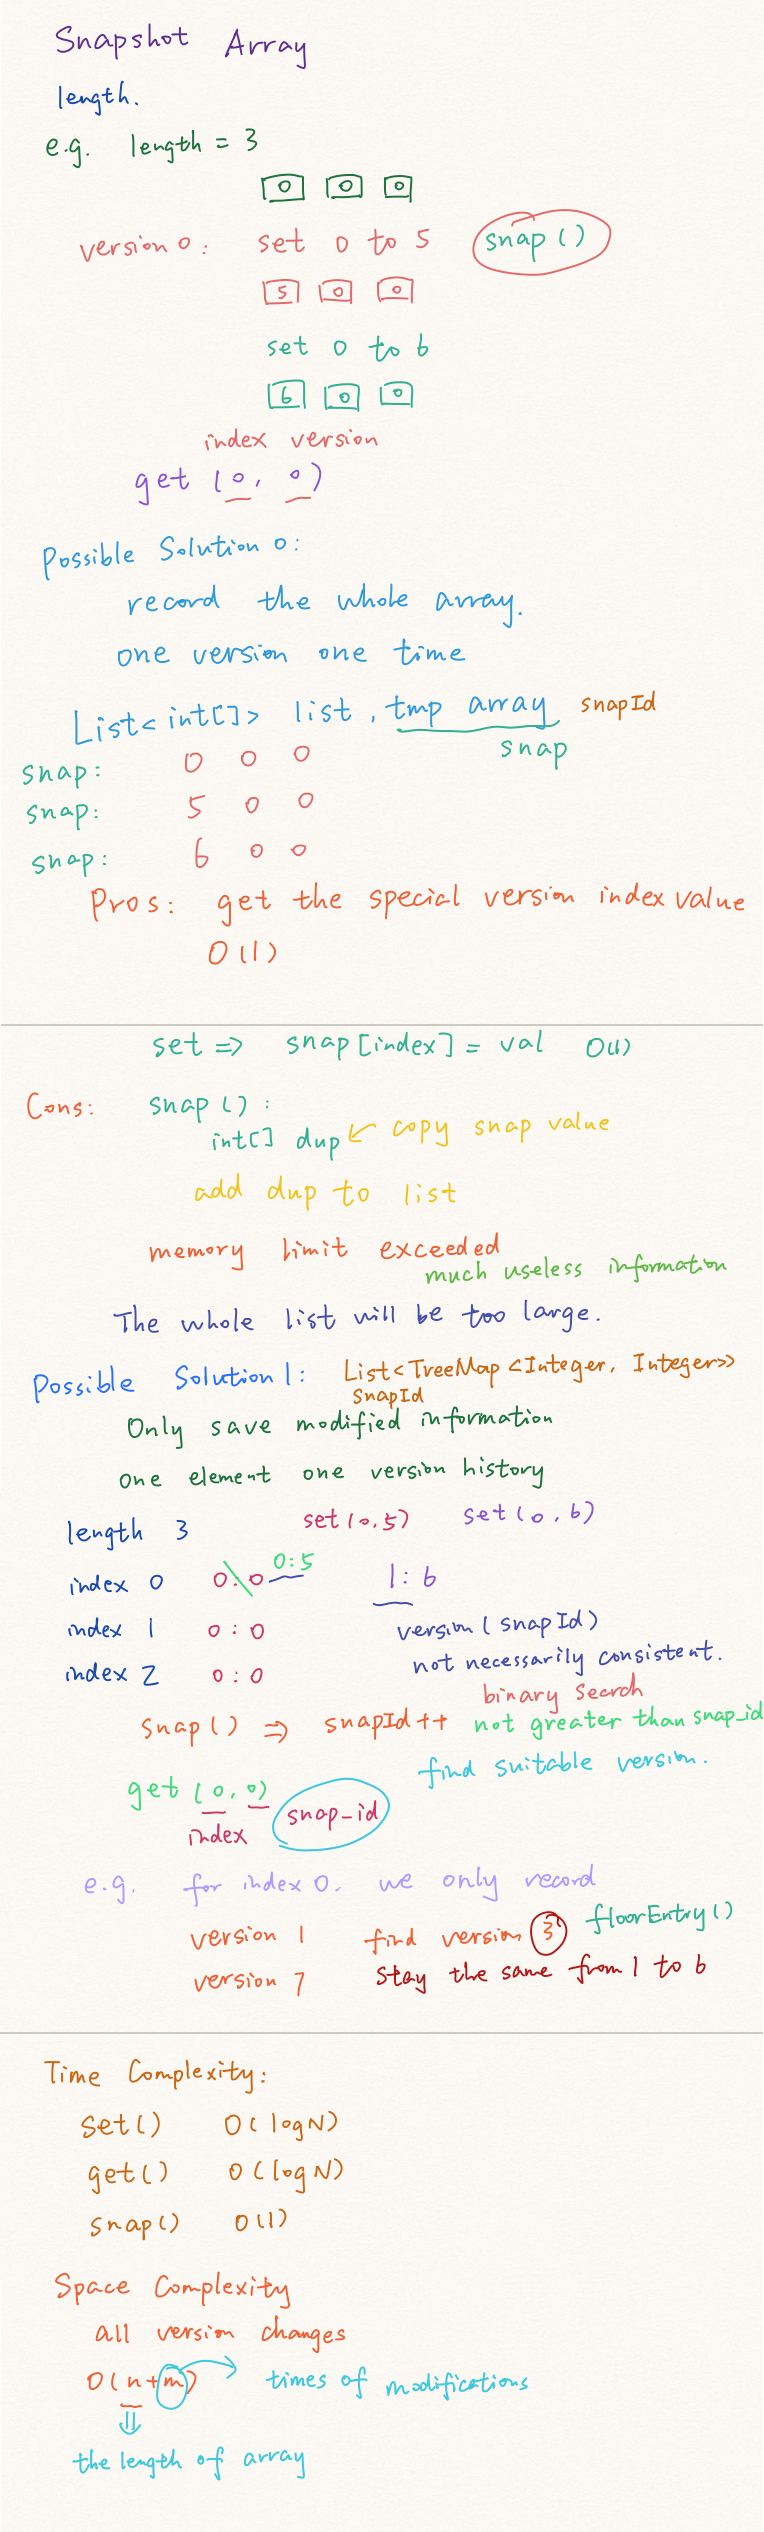 Snapshot Array
length.
e.g. length = 3
0 0 0
version 0: set 0 to 5 snap()
5 0 0
set 0 to 6
6 0 0
index version
get (0, 0)
Possible Solution 0:
record the whole array.
one version one time
List<int[]> list, tmp array snapId
snap
snap: 0 0 0
snap: 5 0 0
snap: 6 0 0
Pros: get the special version index value
O(1)
set => snap[index] = val O(1)
Cons: snap():
int[] dup ← copy snap value
add dup to list
memory limit exceeded
much useless information
The whole list will be too large.
Possible Solution 1: List<TreeMap<Integer, Integer>>
SnapId
Only save modified information
one element one version history
length 3 set(0,5) set(0,6)
index 0 0:0 0:5 1:6
index 1 0:0 version(snapId)
not necessarily consistent.
index 2 0:0
binary search
snap() => snapId++ not greater than snap_id
find suitable version.
get (0,0) snap-id
index
e.g. for index 0. we only record
version 1 find version 3 floorEntry()
version 7 stay the same from 1 to 6
Time Complexity:
set() O(logN)
get() O(logN)
snap() O(1)
Space Complexity
all version changes
O(n+m) → times of modifications
⇓
the length of array